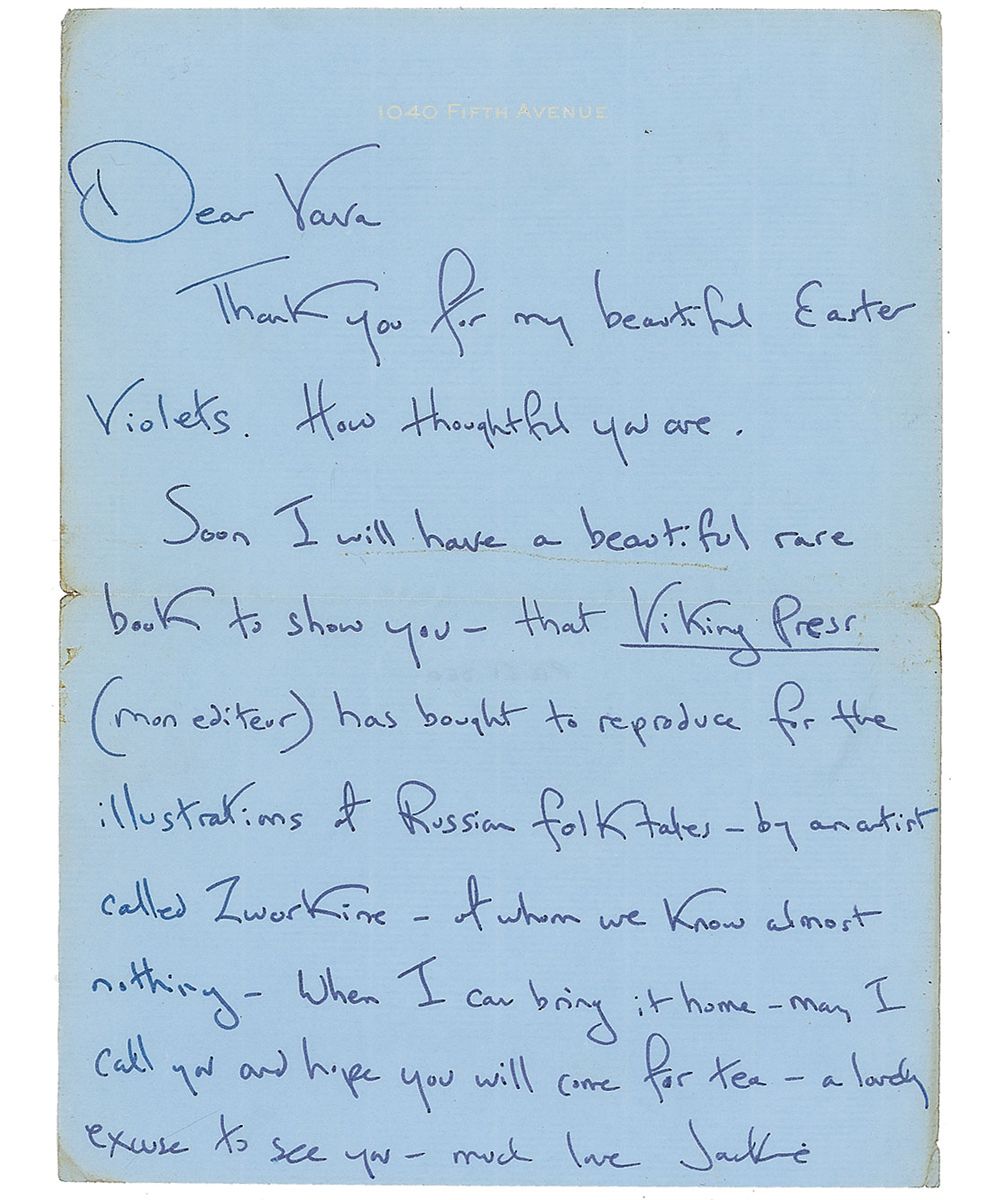 1040 FIFTH AVENUE
Dear Vava
Thank you for my beautiful Easter
Violets. How thoughtful you are.
Soon I will have a beautiful rare
book to show you – that Viking Press
(mon editeur) has bought to reproduce for the
illustrations of Russian folk tales – by an artist
called Zworkine – of whom we know almost
nothing – When I can bring it home – may I
call you and hope you will come for tea – a lovely
excuse to see you – much love Jackie